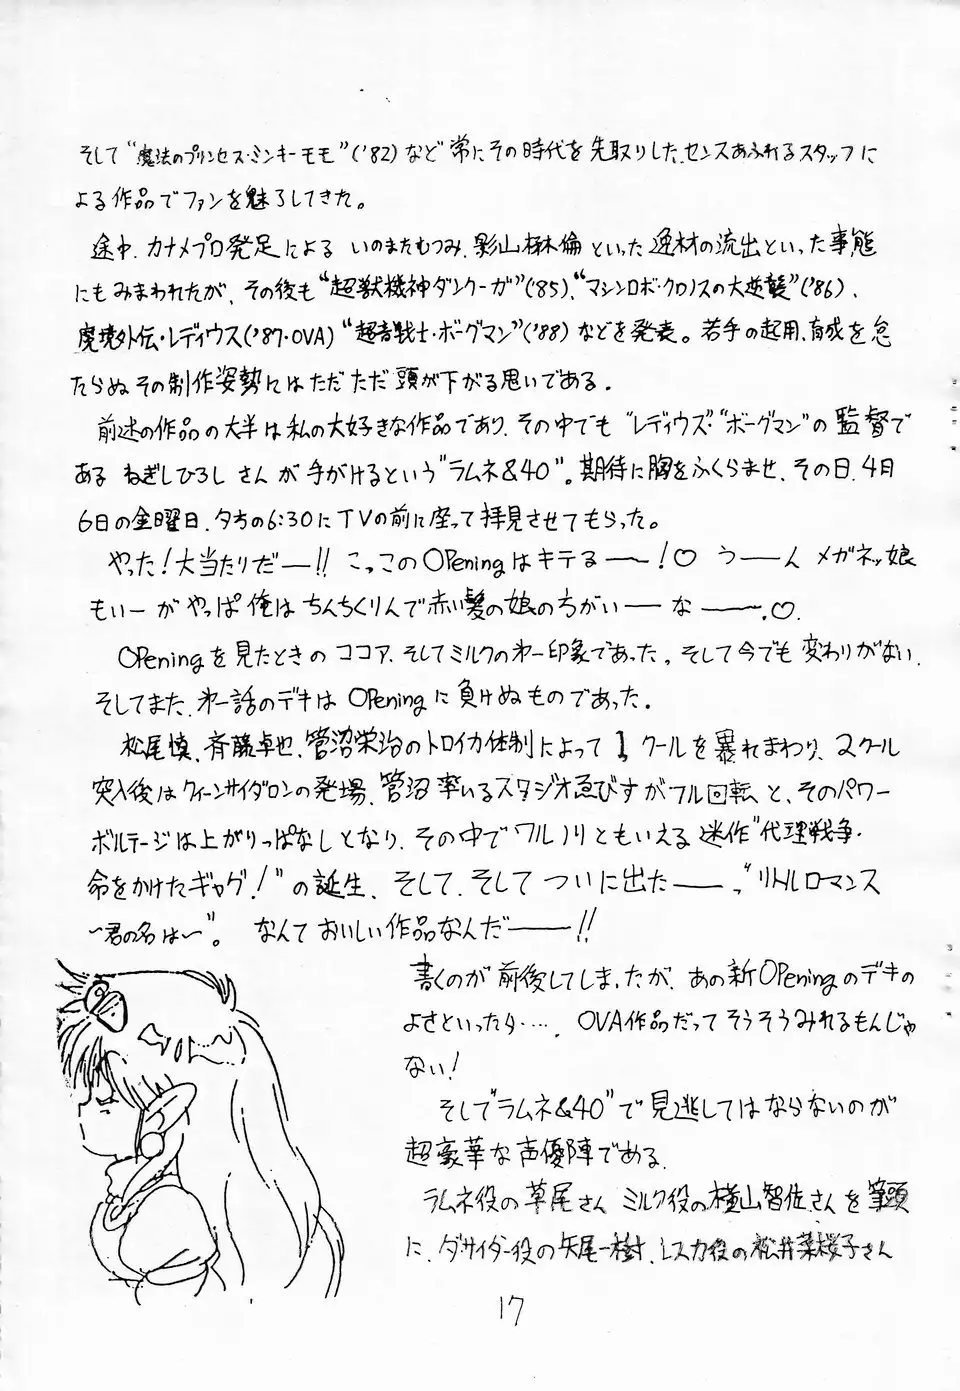 そして“魔法のプリンセス・ミンキーモモ”('82)など常にその時代を先取りした、センスあふれるスタッフに
よる作品でファンを魅了してきた。
途中、カナメプロ発足による いのまたむつみ、影山楙倫といった逸材の流出といった事態
にもみまわれたが、その後も“超獣機神ダンクーガ”('85)、“マシンロボ・クロノスの大逆襲”('86)、
魔境外伝・レディウス('87・OVA)“超音戦士・ボーグマン”('88)などを発表。若手の起用、育成を怠
たらぬその制作姿勢にはただただ頭が下がる思いである。
前述の作品の大半は私の大好きな作品であり、その中でも“レディウズ”“ボーグマン”の監督で
ある ねぎしひろし さんが手がけるという“ラムネ&40”。期待に胸をふくらませ、その日、4月
6日の金曜日、夕方の6:30にTVの前に座って拝見させてもらった。
やった!大当たりだー!! こっこのOPeningはキテるー!♡ うーん メガネッ娘
もいーがやっぱ俺はちんちくりんで赤い髪の娘の方がいーなー。♡
OPeningを見たときのココア、そしてミルクの第一印象であった。そして今でも変わりがない。
そしてまた、第一話のデキはOPeningに負けぬものであった。
松尾慎、斉藤卓也、管沼栄治のトロイカ体制によって1クールを暴れまわり、2クール
突入後はクイーンサイダロンの登場、管沼率いるスタジオゑびすがフル回転と、そのパワー
ボルテージは上がりっぱなしとなり、その中でワルノリともいえる迷作“代理戦争・
命をかけたギャグ!”の誕生、そして、そしてついに出たーっ“リトルロマンス
〜君の名は〜”。なんておいしい作品なんだー!!
書くのが前後してしまったが、あの新OPeningのデキの
よさといったら…‥ OVA作品だってそうそうみれるもんじゃ
ない!
そして“ラムネ&40”で見逃してはならないのが
超豪華な声優陣である。
ラムネ役の草尾さん ミルク役の横山智佐さんを筆頭
に、ダサイダー役の矢尾一樹、レスカ役の松井菜桜子さん
17